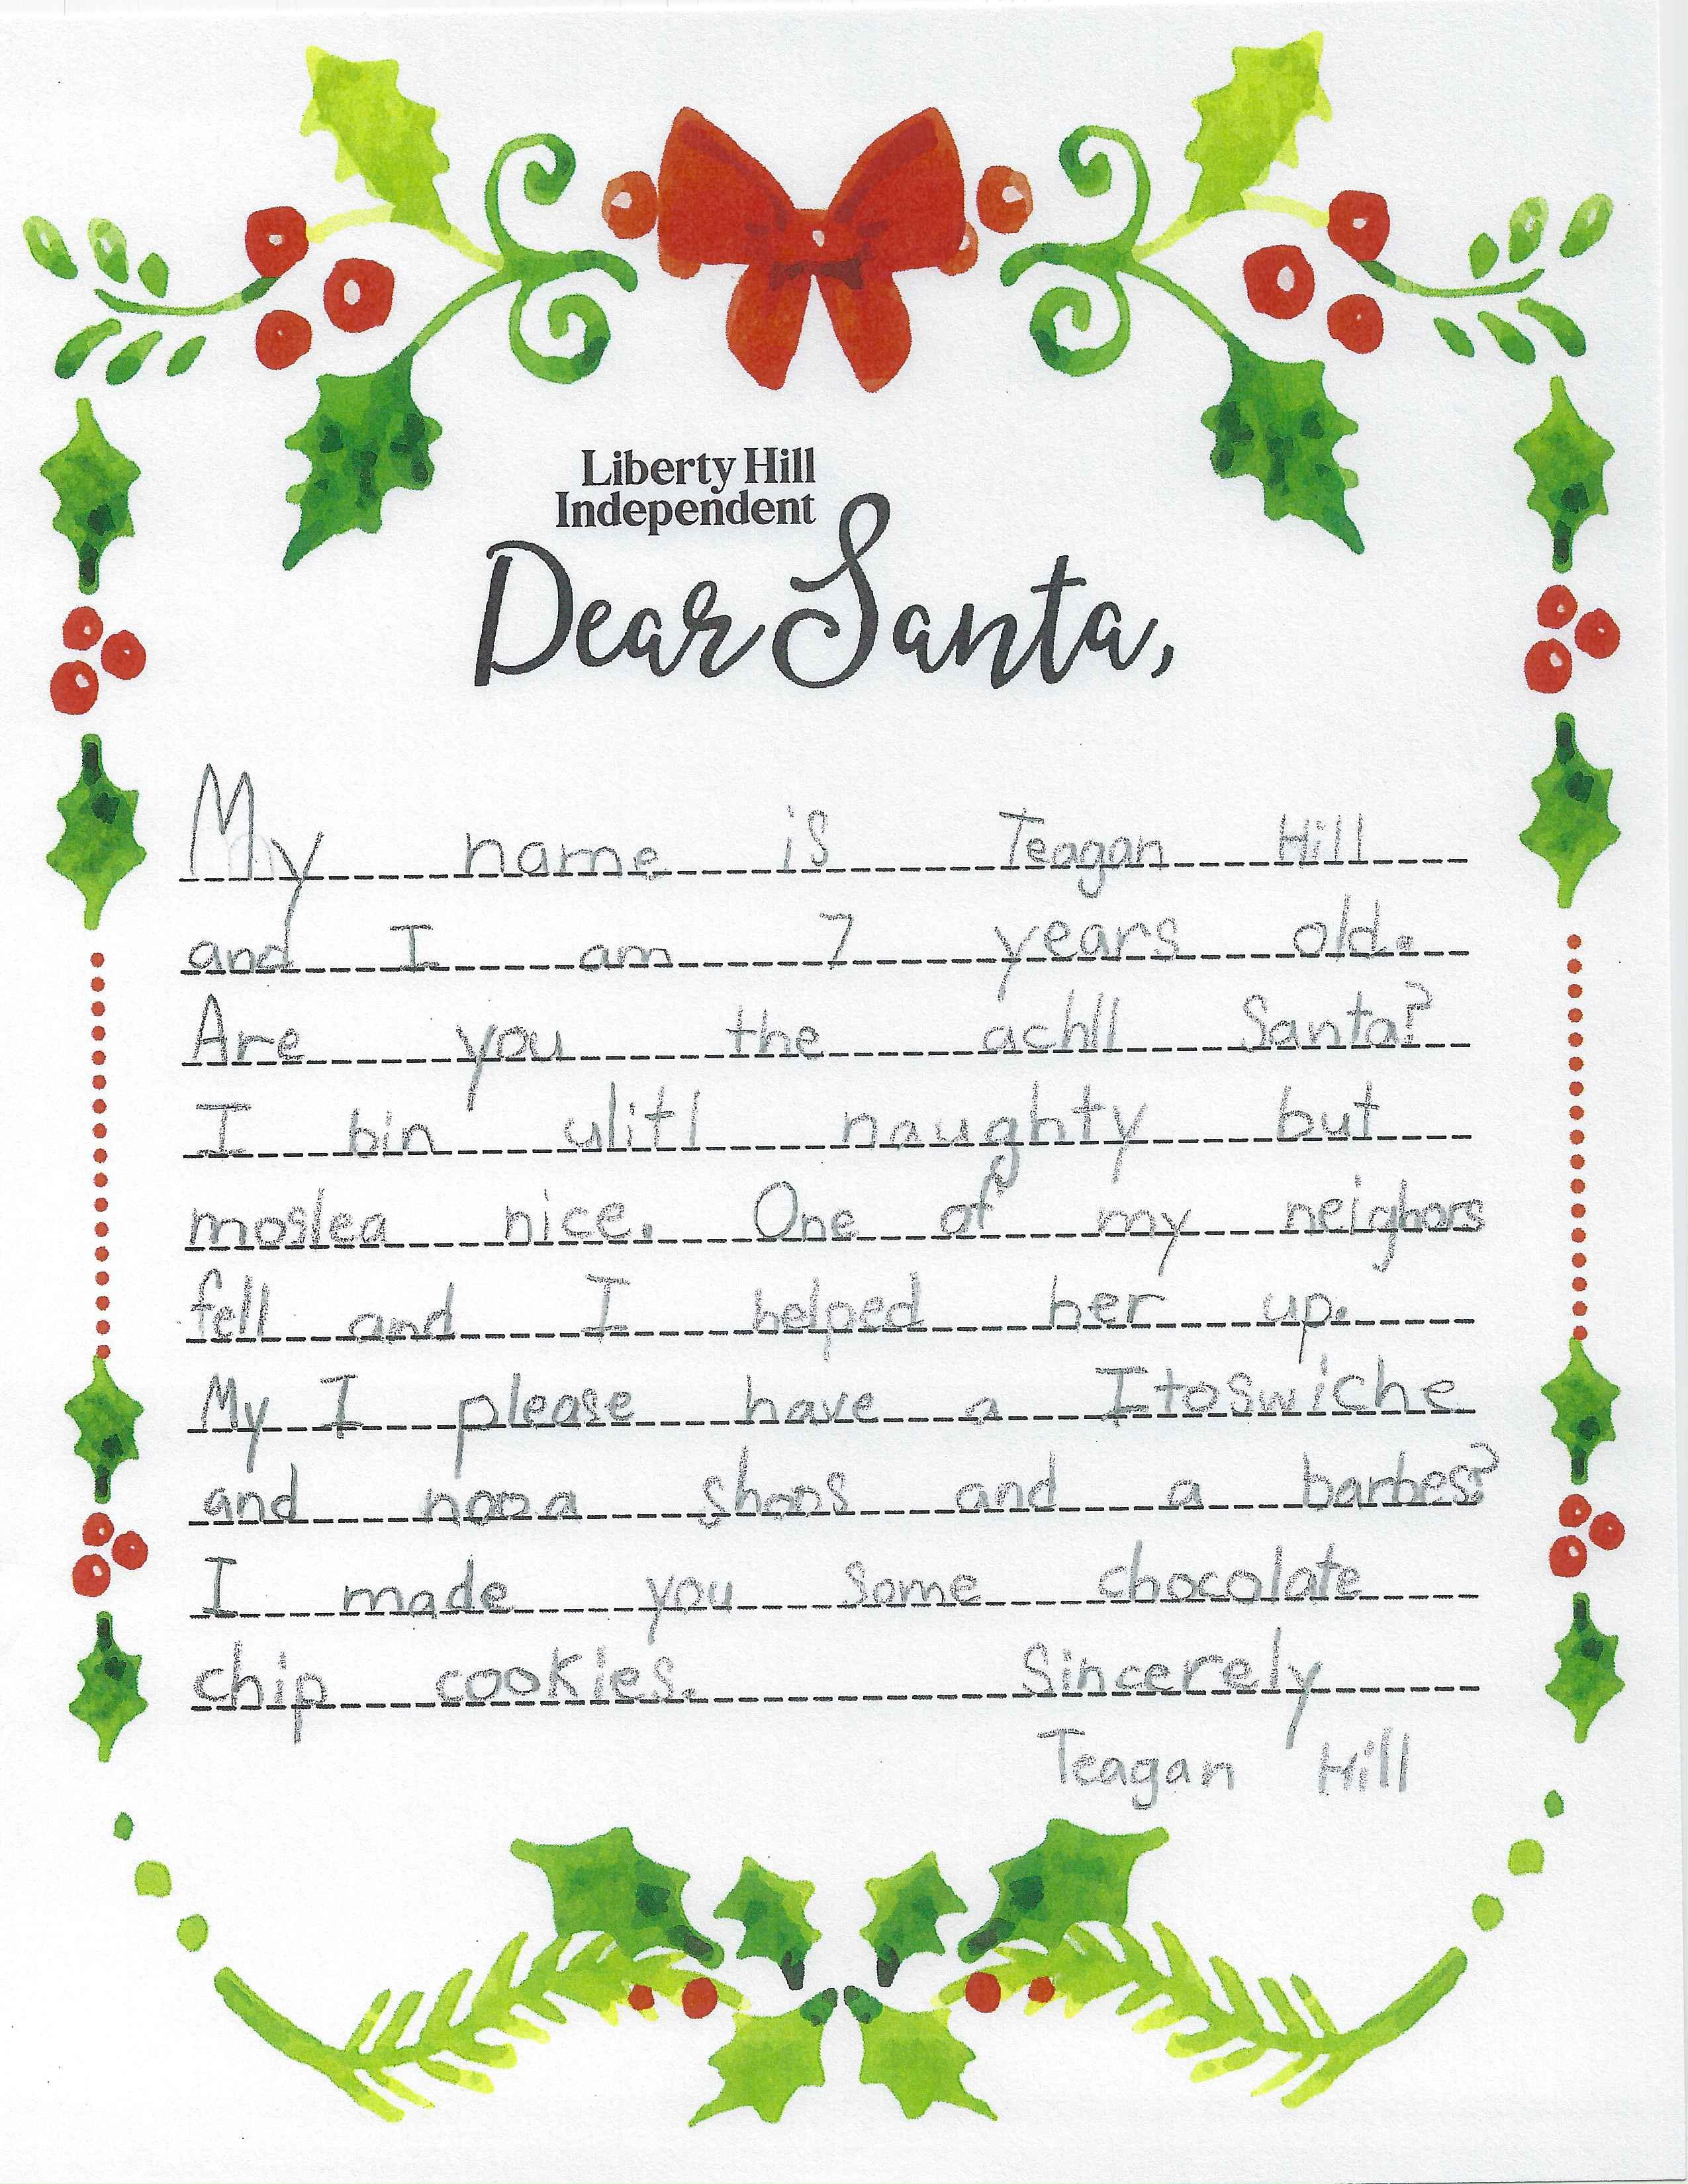 Liberty Hill
Independent
Dear Santa,
My name is Teagan Hill
and I am 7 years old.
Are you the achll Santa?
I bin ulitl naughty but
moslea nice. One of my neighors
fell and I helped her up.
My I please have a Itoswiche
and nooa shoos and a barbes?
I made you some chocolate
chip cookies. Sincerely
Teagan Hill